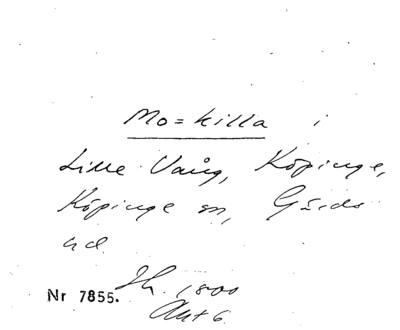 Mo=killa i
Lille Vång, Köpinge,
Köpinge sn, Gärds
hd.
Sk. 1800
Akt 6
Nr 7855.